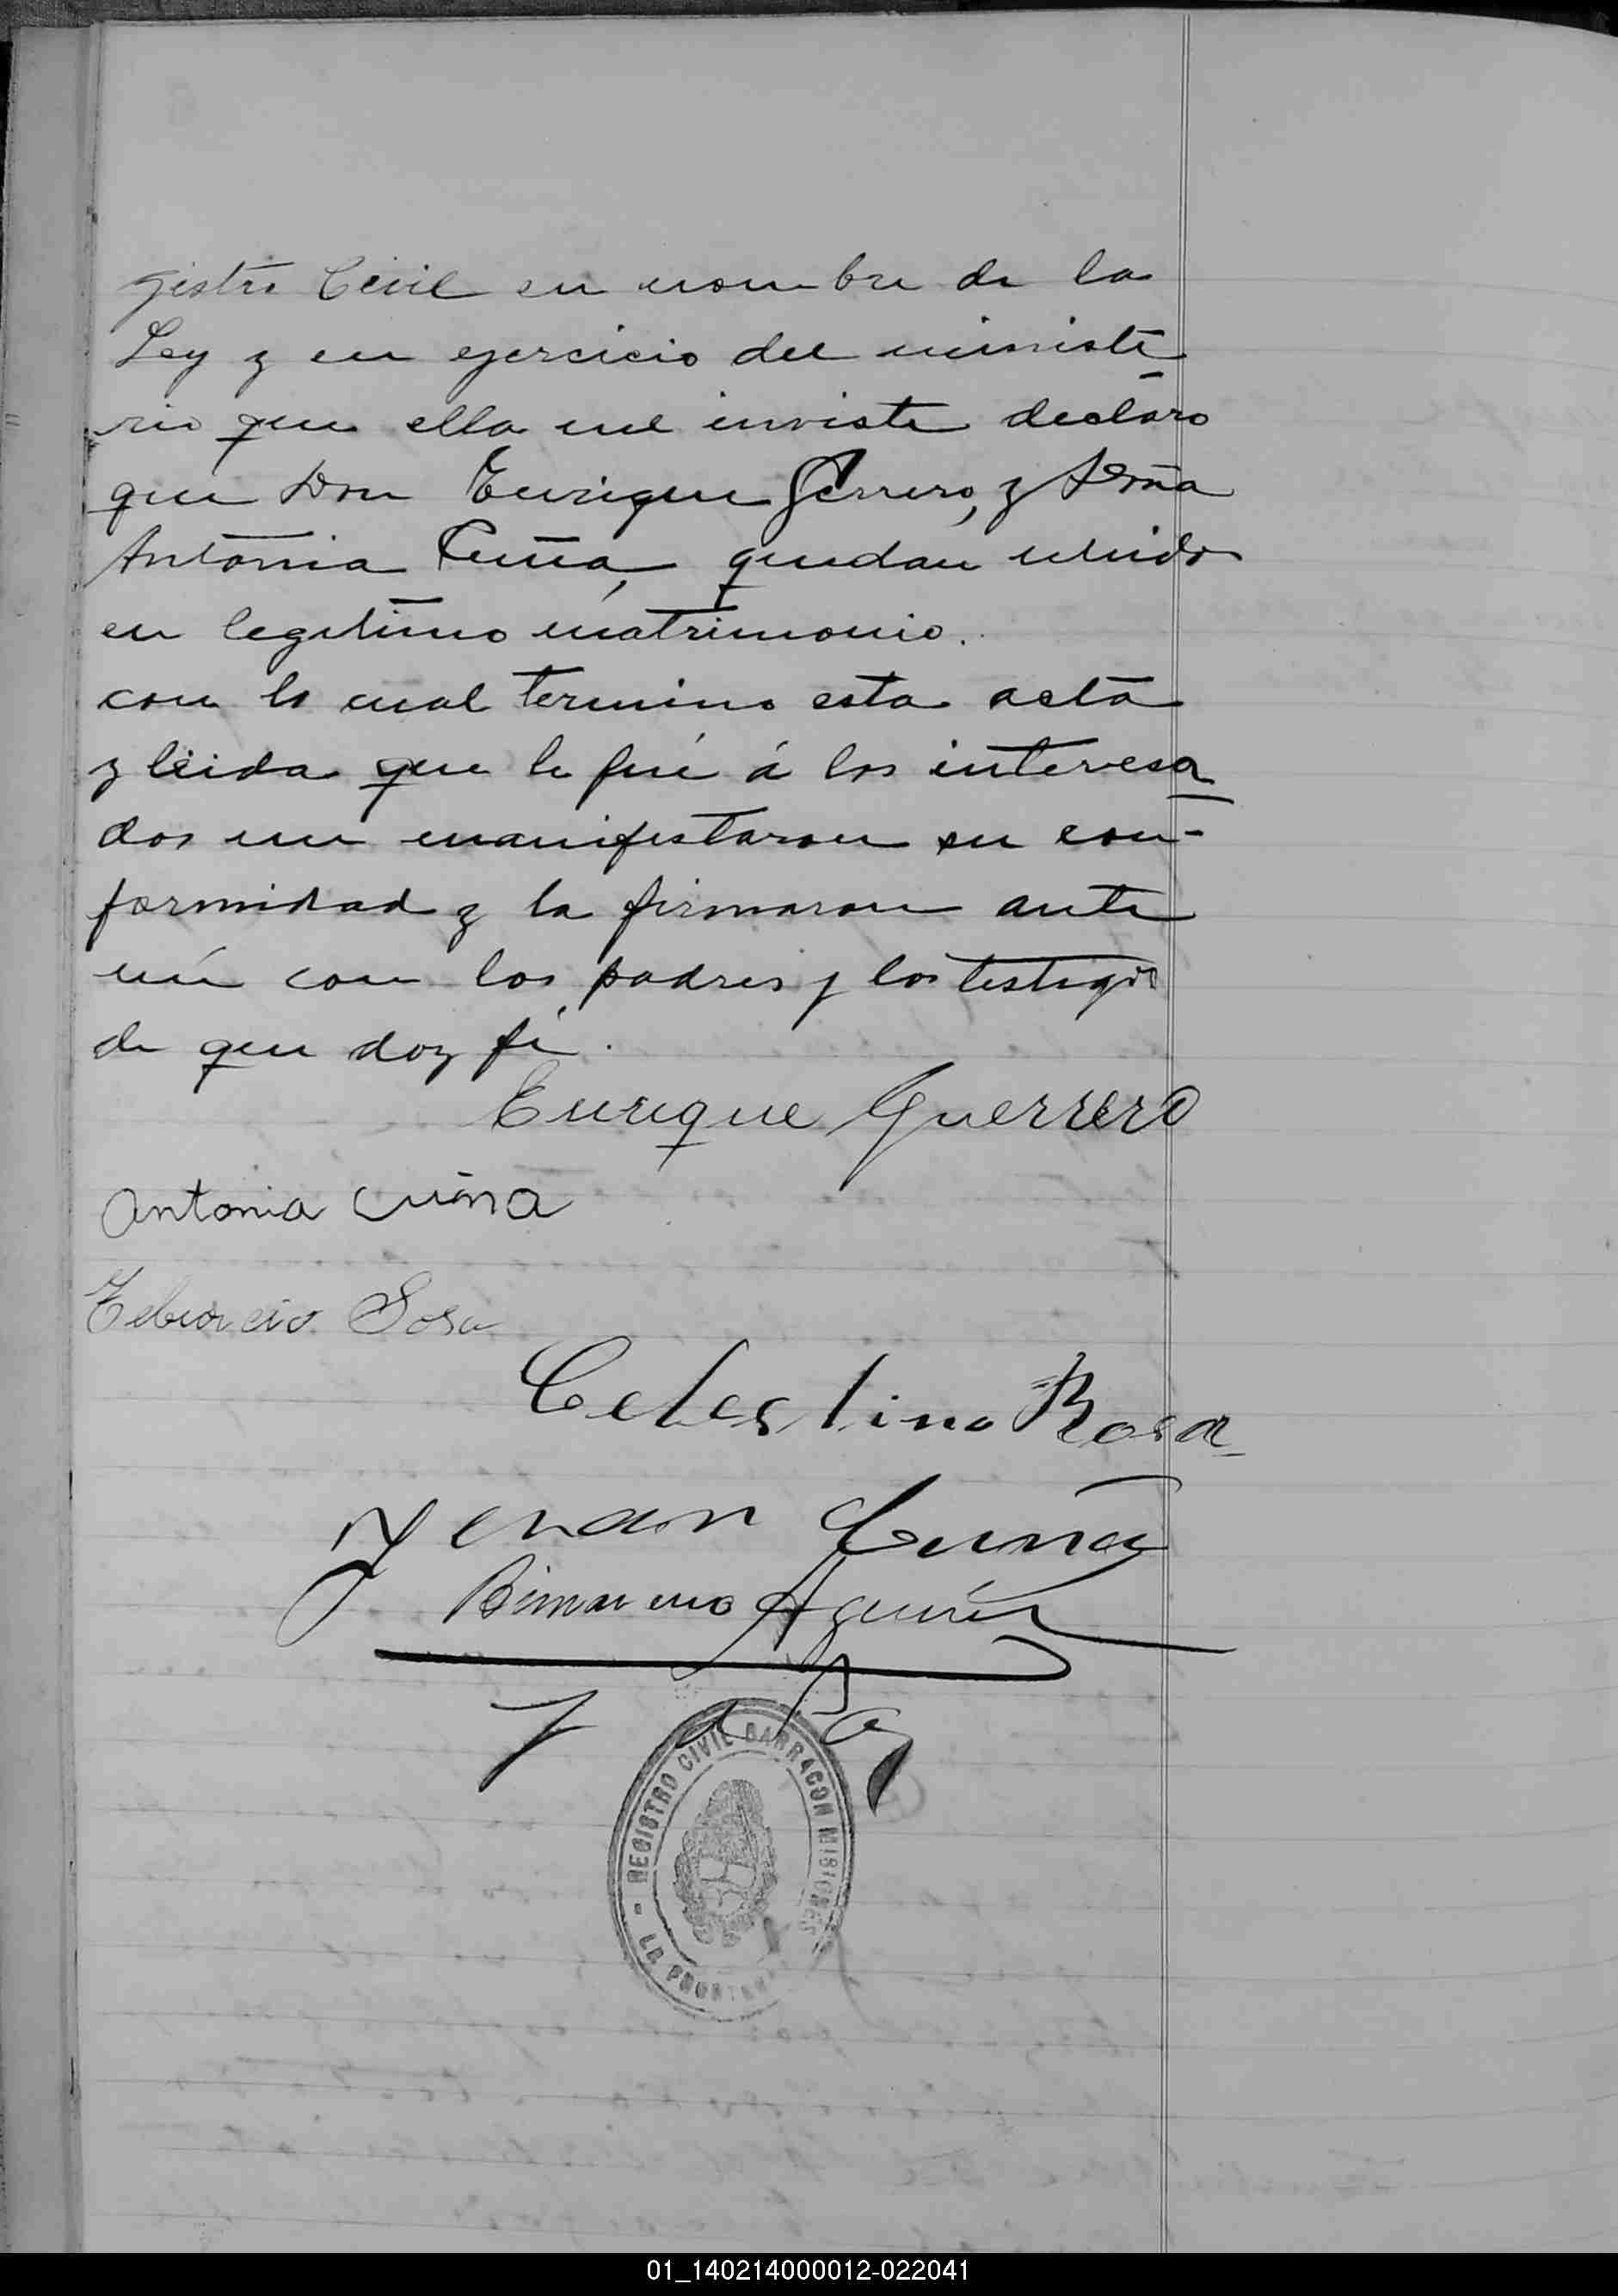 gistro Civil en nombre de la
Ley y en ejercicio del ministe
rio que ella me inviste declaro
que Don Enrique Gerrero, y Doña
Antonia Cuña, quedan unidos
en legitimo matrimonio.
con lo cual termino esta acta
y leida que le fué á los interesa
dos me manifestaron su con-
formidad y la firmaron ante
mi con los padres y los testigos
de que doy fé.
Enrique Guerrero
Antonia Cuña
Sosa
Celestino Rosa
Cuña
Aguirre
J d Paz
REGISTRO CIVIL BARRACON MISIONES
01_140214000012-022041